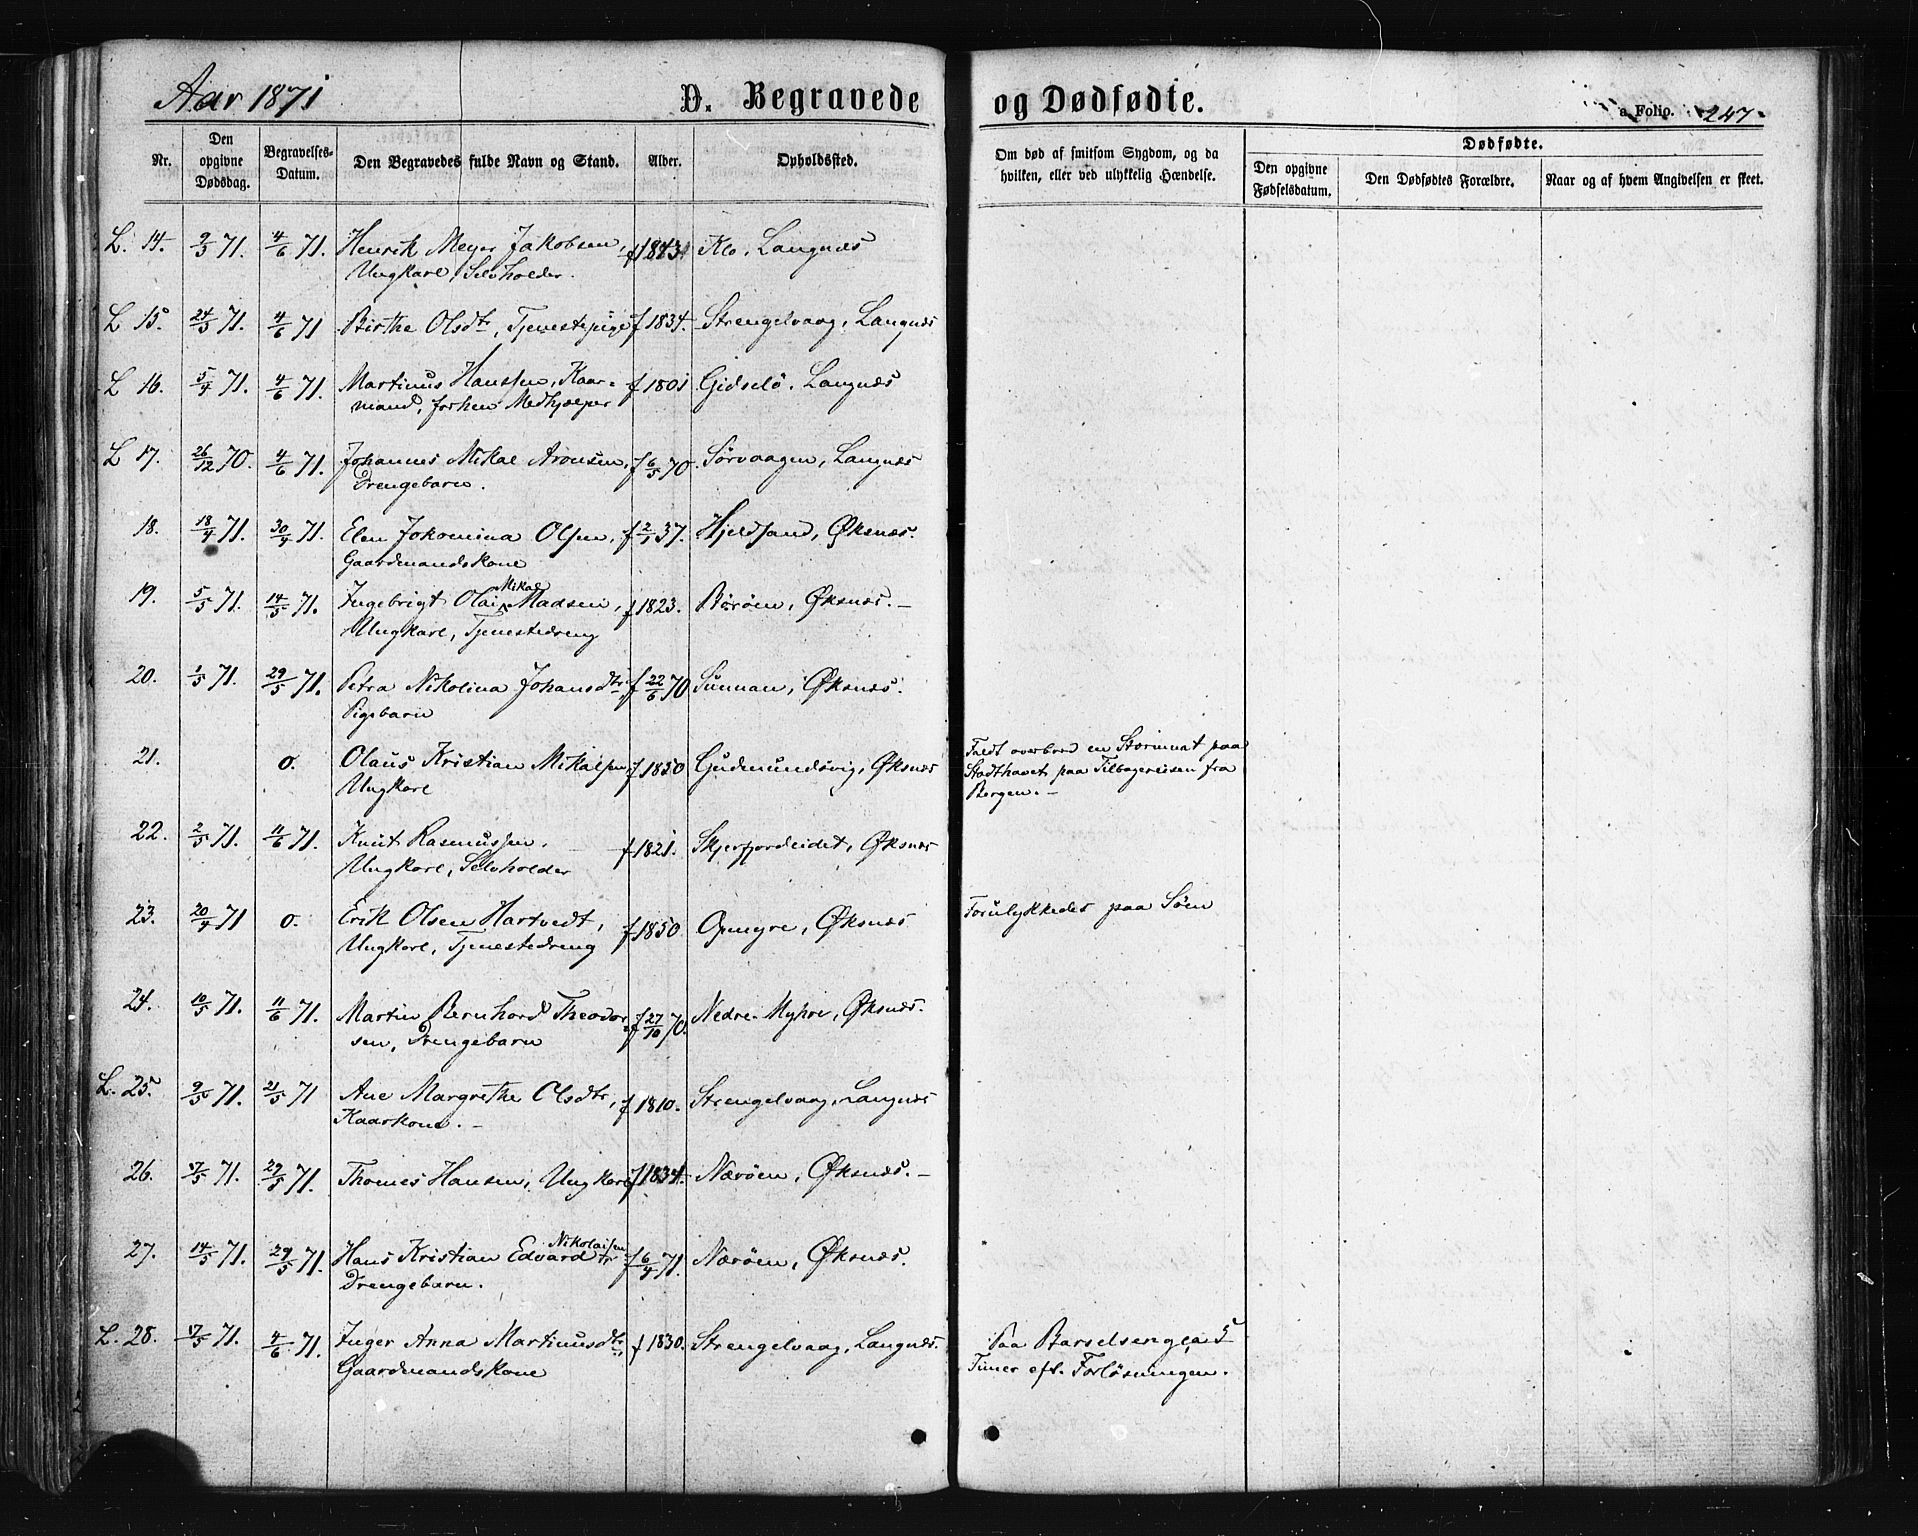 Aar 1871
D. Begravede og Dødfødte.
a. Folio. 247.
Nr.
Den opgivne Dødsdag.
Begravelses-Datum.
Den Begravedes fulde Navn og Stand.
Alder.
Opholdssted.
Om død af smitsom Sygdom, og da hvilken, eller ved ulykkelig Hændelse.
Dødfødte.
Den opgivne Fødselsdatum.
Den Dødfødtes Forældre.
Naar og af hvem Angivelsen er skeet.
L. 14. 9/3 71. 4/6 71. Henrik Meyer Jakobsen, f 1843. Klo, Langnæs
Ungkarl, Selvholder.
L 15. 24/3 71. 4/6 71 Birthe Olsdtr, Tjenestepige f 1834. Strengelvaag, Langnæs
L 16. 5/4 71. 4/6 71. Martinus Hanssen, Kaar- f 1801 Gidselö, Langnæs
mand, forhen Medhjælper
L 17. 26/12 70. 4/6 71. Johannes Mikal Aronsen, f 6/5 70. Sørvaagen, Langnæs
Drengebarn.
18. 18/4 71. 30/4 71. Elen Jakomina Olsen, f 2/1 37. Hjeldsand, Øksnæs.
Gaardmandskone
19. 5/5 71. 14/5 71. Ingebrigt Olai Mikal Madsen, f 1823. Børøen, Øksnæs. –
Ungkarl, Tjenestedreng
20. 1/5 71. 29/5 71. Petra Nikolina Johansdtr f 22/6 70 Sunnan, Øksnæs.
Pigebarn
21. 0. Olaus Kristian Mikalsen f 1850 Gudmundsvig, Øksnæs Faldt overbord en Stormnat paa
Ungkarl Stadthavet paa Tilbagereisen fra
Bergen. –
22. 2/5 71. 11/6 71. Knut Rasmussen, f 1821. Skjerfjordeidet, Øksnæs
Ungkarl, Selvholder
23. 20/4 71 0. Erik Olsen Hartvedt, f 1850. Opmyre, Øksnæs Forulykkedes paa Søen
Ungkarl, Tjenestedreng
24. 10/5 71. 11/6 71. Martin Bernhard Theodor- f 27/10 70. Nedre-Myhre, Øksnæs.
sen, Drengebarn
L. 25. 9/5 71. 21/5 71 Ane Margrethe Olsdtr, f 1810. Strengelvaag, Langnæs
Kaarkone. –
26. 17/5 71. 29/5 71. Thomes Hansen, Ungkarl f 1834. Nærøen, Øksnæs. –
27. 14/5 71. 29/5 71. Hans Kristian Edvard Nikolaisen f 6/4 71. Nærøen, Øksnæs.
Drengebarn.
L. 28. 17/5 71. 4/6 71. Inger Anna Martinusdtr f 1830. Strengelvaag, Langnæs. Paa Barselseng ca 5
Gaardmandskone Timer eft. Forløsningen.